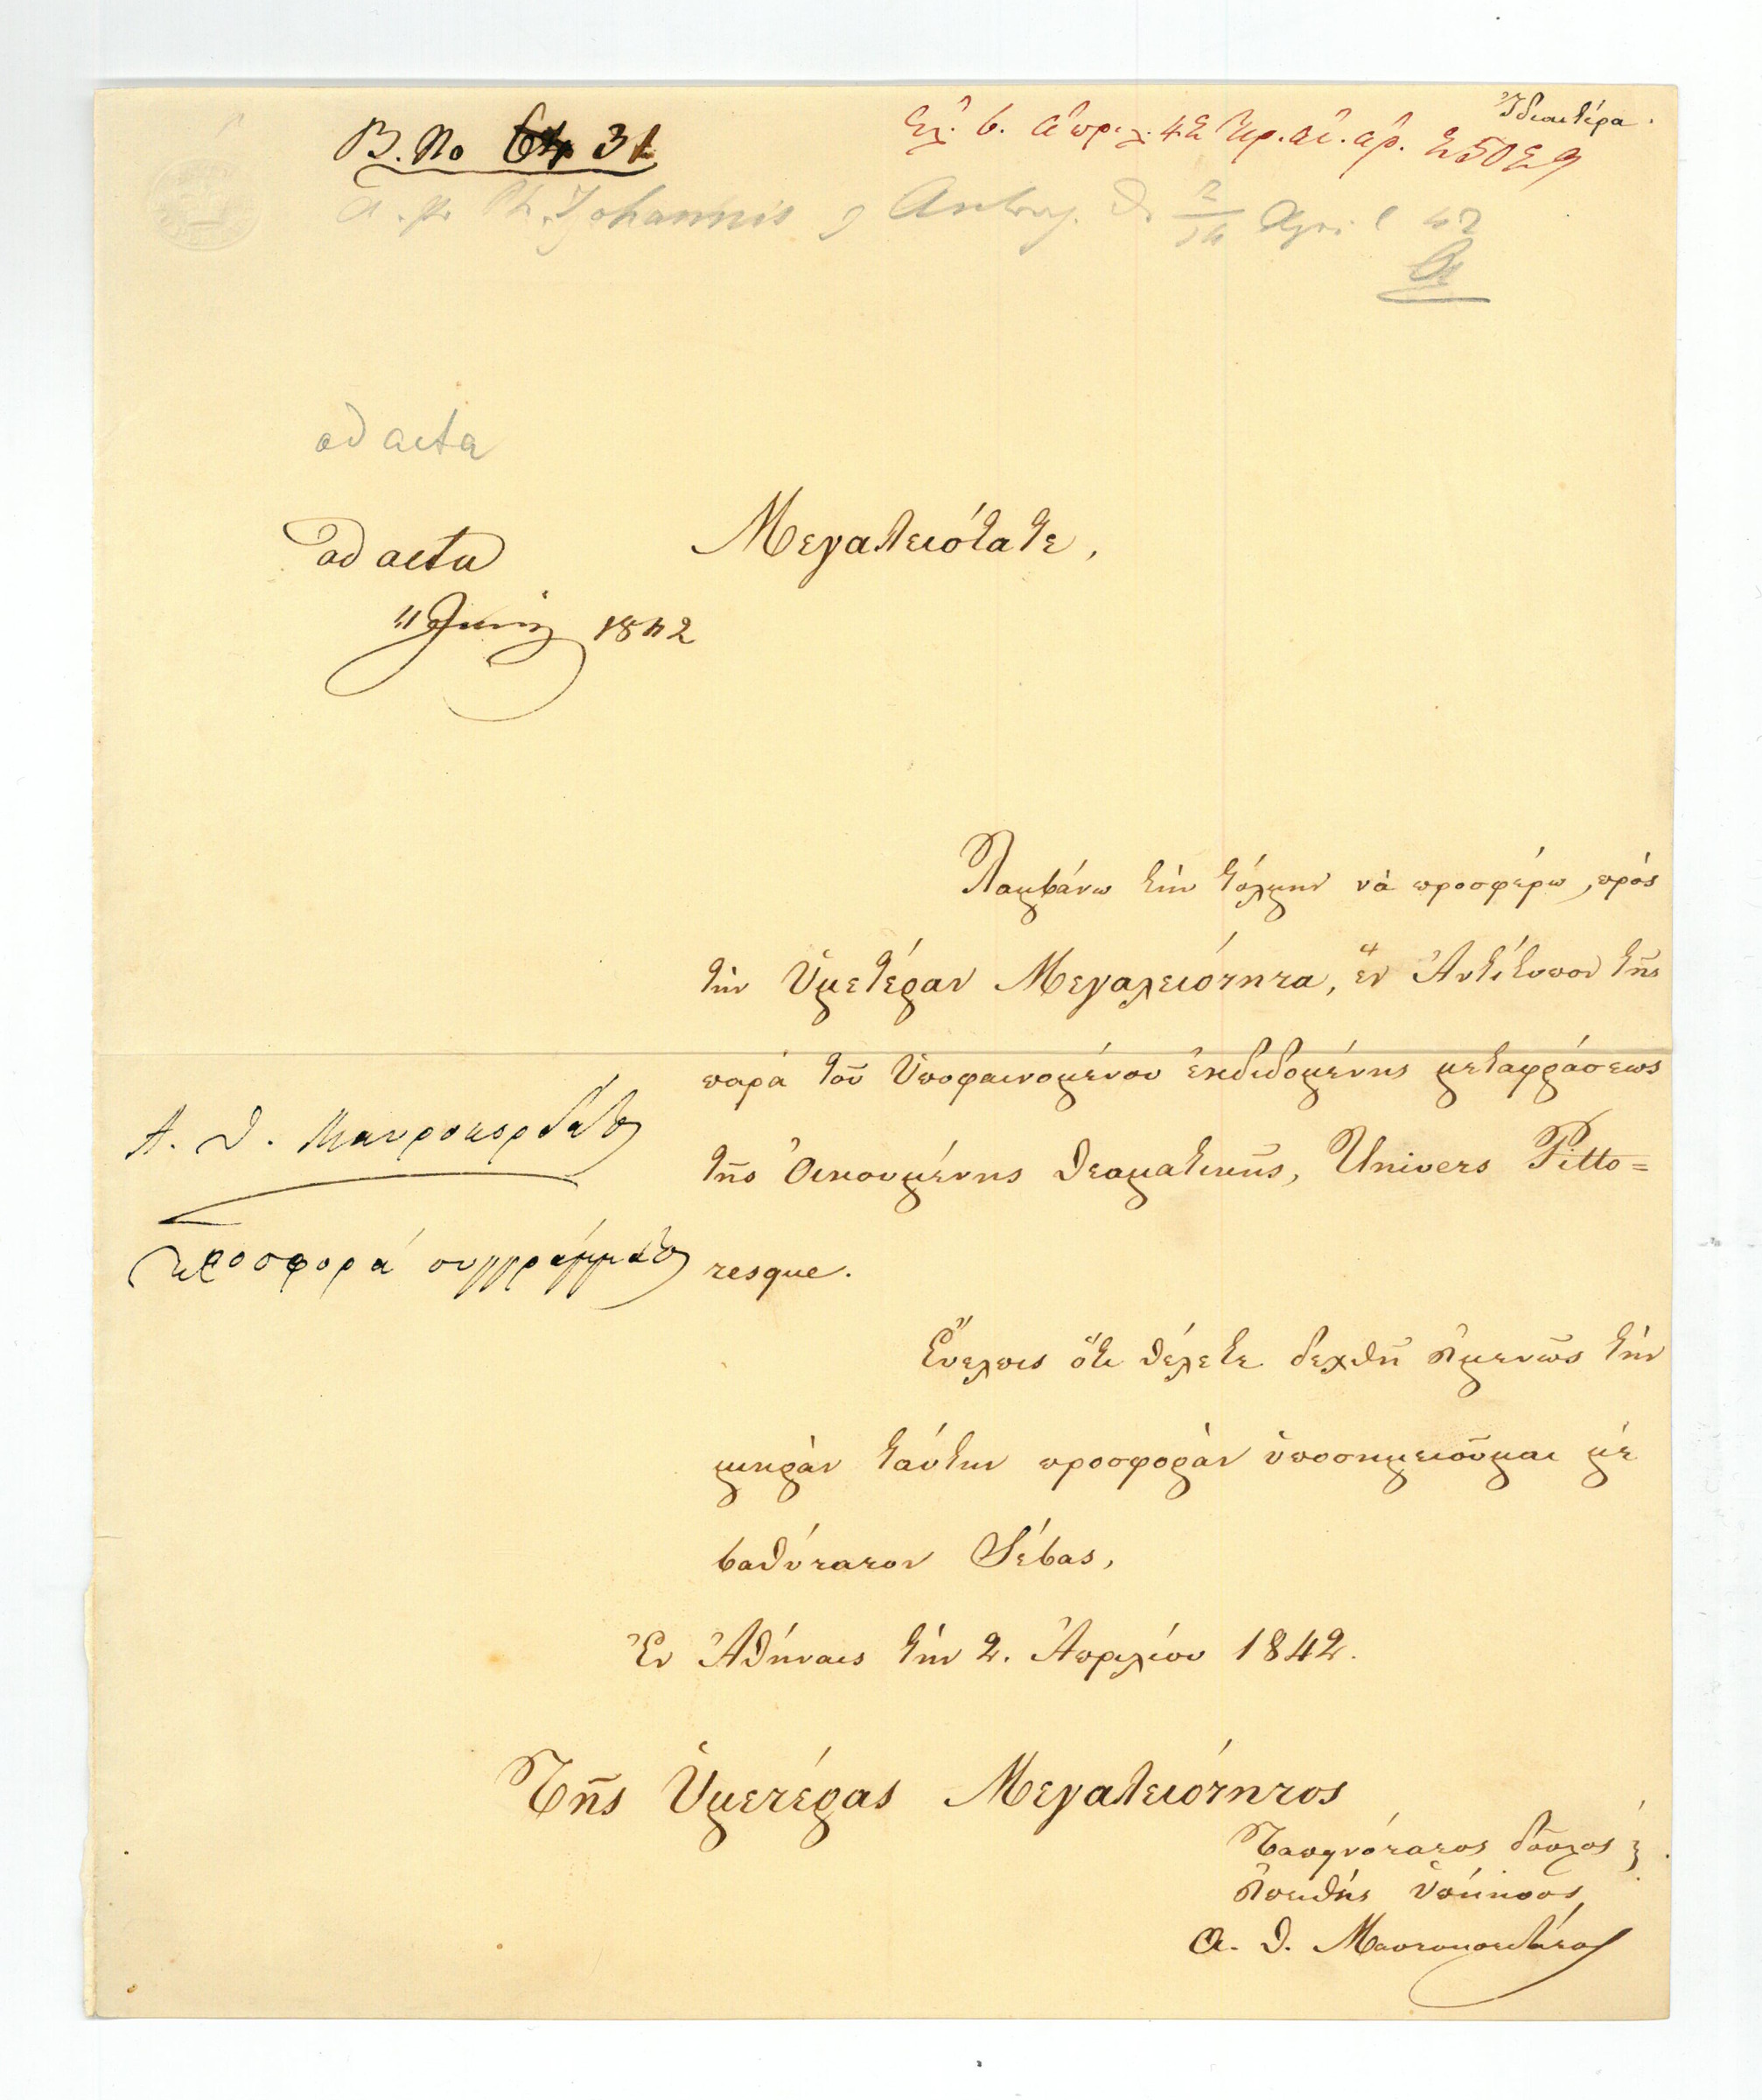 Ἰδιαιτέρα.
B. No 31
Ἐλ. 6. Ἀπριλ. 42 ἀρ. 25029
Johannis April 42
ad acta
ad acta
11 Juni 1842
Μεγαλειότατε,
Λαμβάνω τὴν τόλμην νὰ προσφέρω, πρὸς
τὴν Ὑμετέραν Μεγαλειότητα, ἓν Ἀντίτυπον τῆς
παρὰ τοῦ Ὑποφαινομένου ἐκδιδομένης μεταφράσεως
τῆς Οἰκουμένης Θεαματικῆς, Univers Pitto=
resque.
Α. Θ. Μαυροκορδάτος
Προσφορά συγγράμματος
Εὔελπις ὅτι θέλετε δεχθῆ εὐμενῶς τὴν
μικρὰν ταύτην προσφορὰν ὑποσημειοῦμαι μὲ
βαθύτατον Σέβας,
Ἐν Ἀθήναις τὴν 2. Ἀπριλίου 1842.
Τῆς Ὑμετέρας Μεγαλειότητος
Ταπεινότατος δοῦλος &
εὐπειθὴς ὑπήκοος
Α. Θ. Μαυροκορδάτος